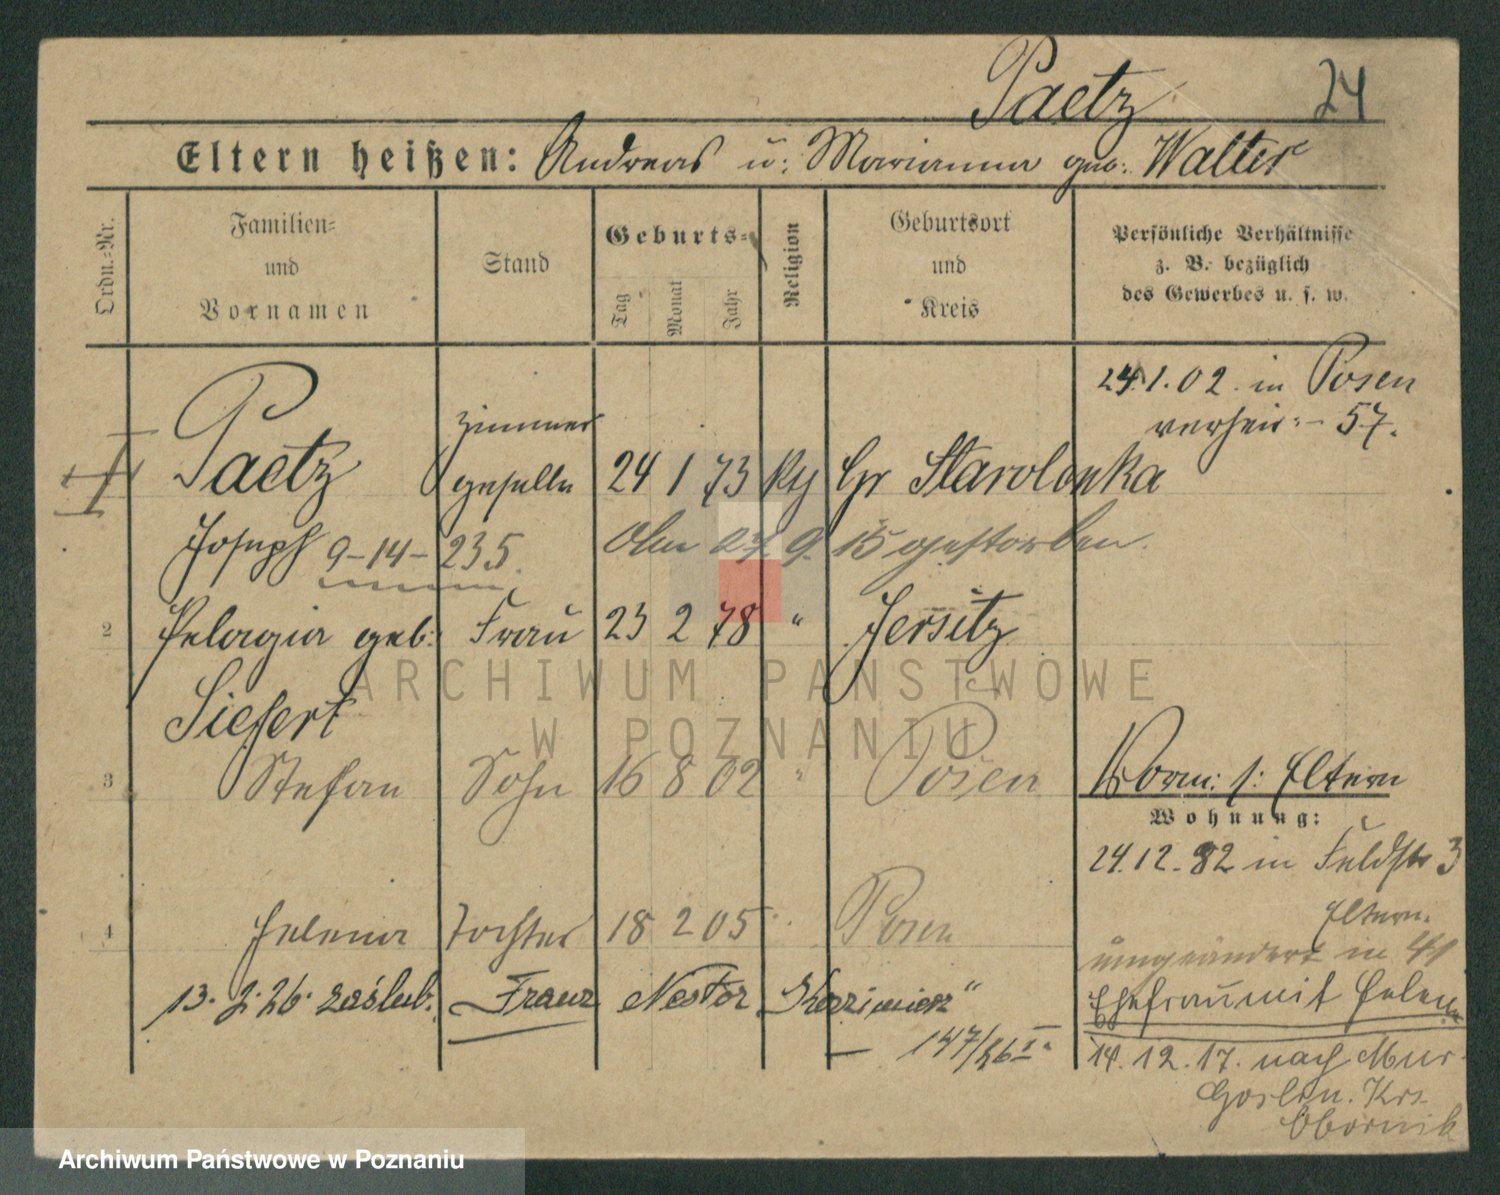 Paetz 24
Eltern heißen: Andreas u: Marianna geb: Walter
Ordn.-Nr.
Familien-
und
Vornamen
Stand
Geburts-
Tag Monat Jahr
Religion
Geburtsort
und
Kreis
Persönliche Verhältnisse
z. B. bezüglich
des Gewerbes u. s. w.
24.1.02. in Posen
verheir: - 57.
Paetz Zimmer
geselle 24 1 73 Gr Starolenka
Joseph 9-14-235. 27 9. 15 gestorben.
2 Pelagia geb: Frau 23 2 78 " Jersitz
Siefert
3 Stefan Sohn 16 8 02 " Posen
Eltern
Wohnung:
24.12. in Feldstr 3
4 Helena Tochter 18 2 05 Posen
Eltern.
umgeändert in
13. 2. 26. zaślub. Franz Nestor Kazimierz"
Ehefrau mit Helena
147/26 I.
14.12.17. nach Mur
Goslin. Krs.
Obornik
ARCHIWUM PAŃSTWOWE
W POZNANIU
Archiwum Państwowe w Poznaniu